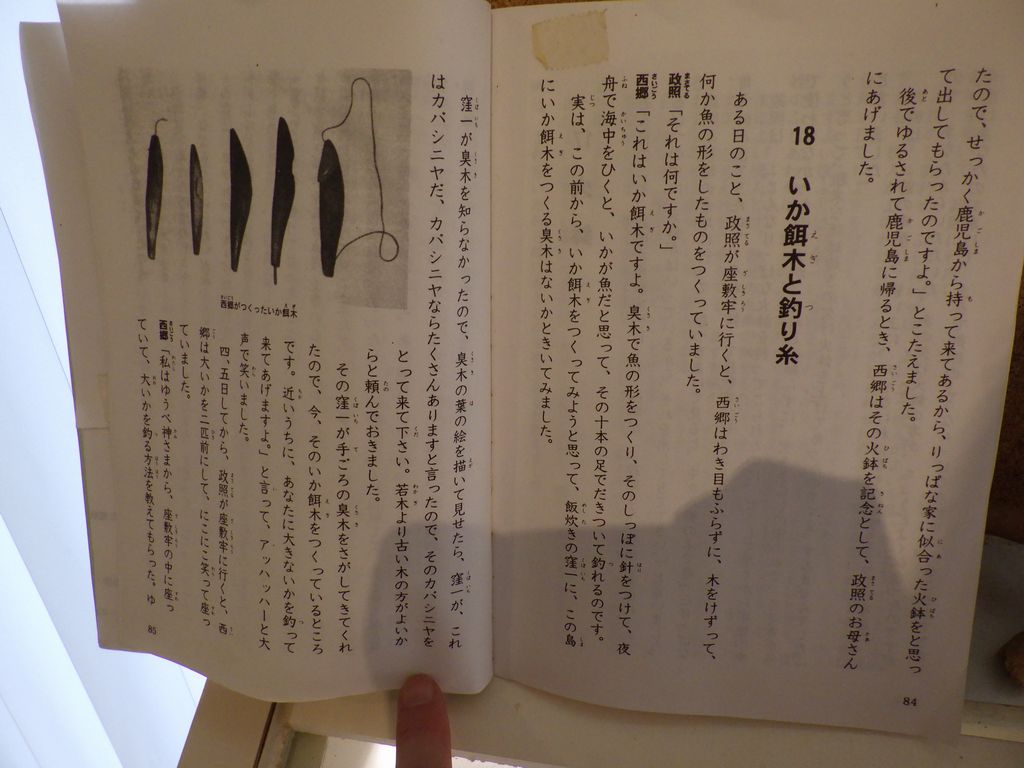 たので、せっかく鹿児島から持って来てあるから、りっぱな家に似合った火鉢をと思っ
て出してもらったのですよ。」とこたえました。
後でゆるされて鹿児島に帰るとき、西郷はその火鉢を記念として、政照のお母さん
にあげました。
18 いか餌木と釣り糸
ある日のこと、政照が座敷牢に行くと、西郷はわき目もふらずに、木をけずって、
何か魚の形をしたものをつくっていました。
政照「それは何ですか。」
西郷「これはいか餌木ですよ。臭木で魚の形をつくり、そのしっぽに針をつけて、夜
舟で海中をひくと、いかが魚だと思って、その十本の足でだきついて釣れるのです。
実は、この前から、いか餌木をつくってみようと思って、飯炊きの窪一に、この島
にいか餌木をつくる臭木はないかときいてみました。
84
窪一が臭木を知らなかったので、臭木の葉の絵を描いて見せたら、窪一が、これ
はカバシニヤだ、カバシニヤならたくさんありますと言ったので、そのカバシニヤを
とって来て下さい。若木より古い木の方がよいか
らと頼んでおきました。
その窪一が手ごろの臭木をさがしてきてくれ
たので、今、そのいか餌木をつくっているところ
です。近いうちに、あなたに大きないかを釣って
来てあげますよ。」と言って、アッハッハーと大
声で笑いました。
四、五日してから、政照が座敷牢に行くと、西
郷は大いかを二匹前にして、にこにこ笑って座っ
ていました。
西郷「私はゆうべ神さまから、座敷牢の中に座っ
ていて、大いかを釣る方法を教えてもらった。ゆ
西郷がつくったいか餌木
85